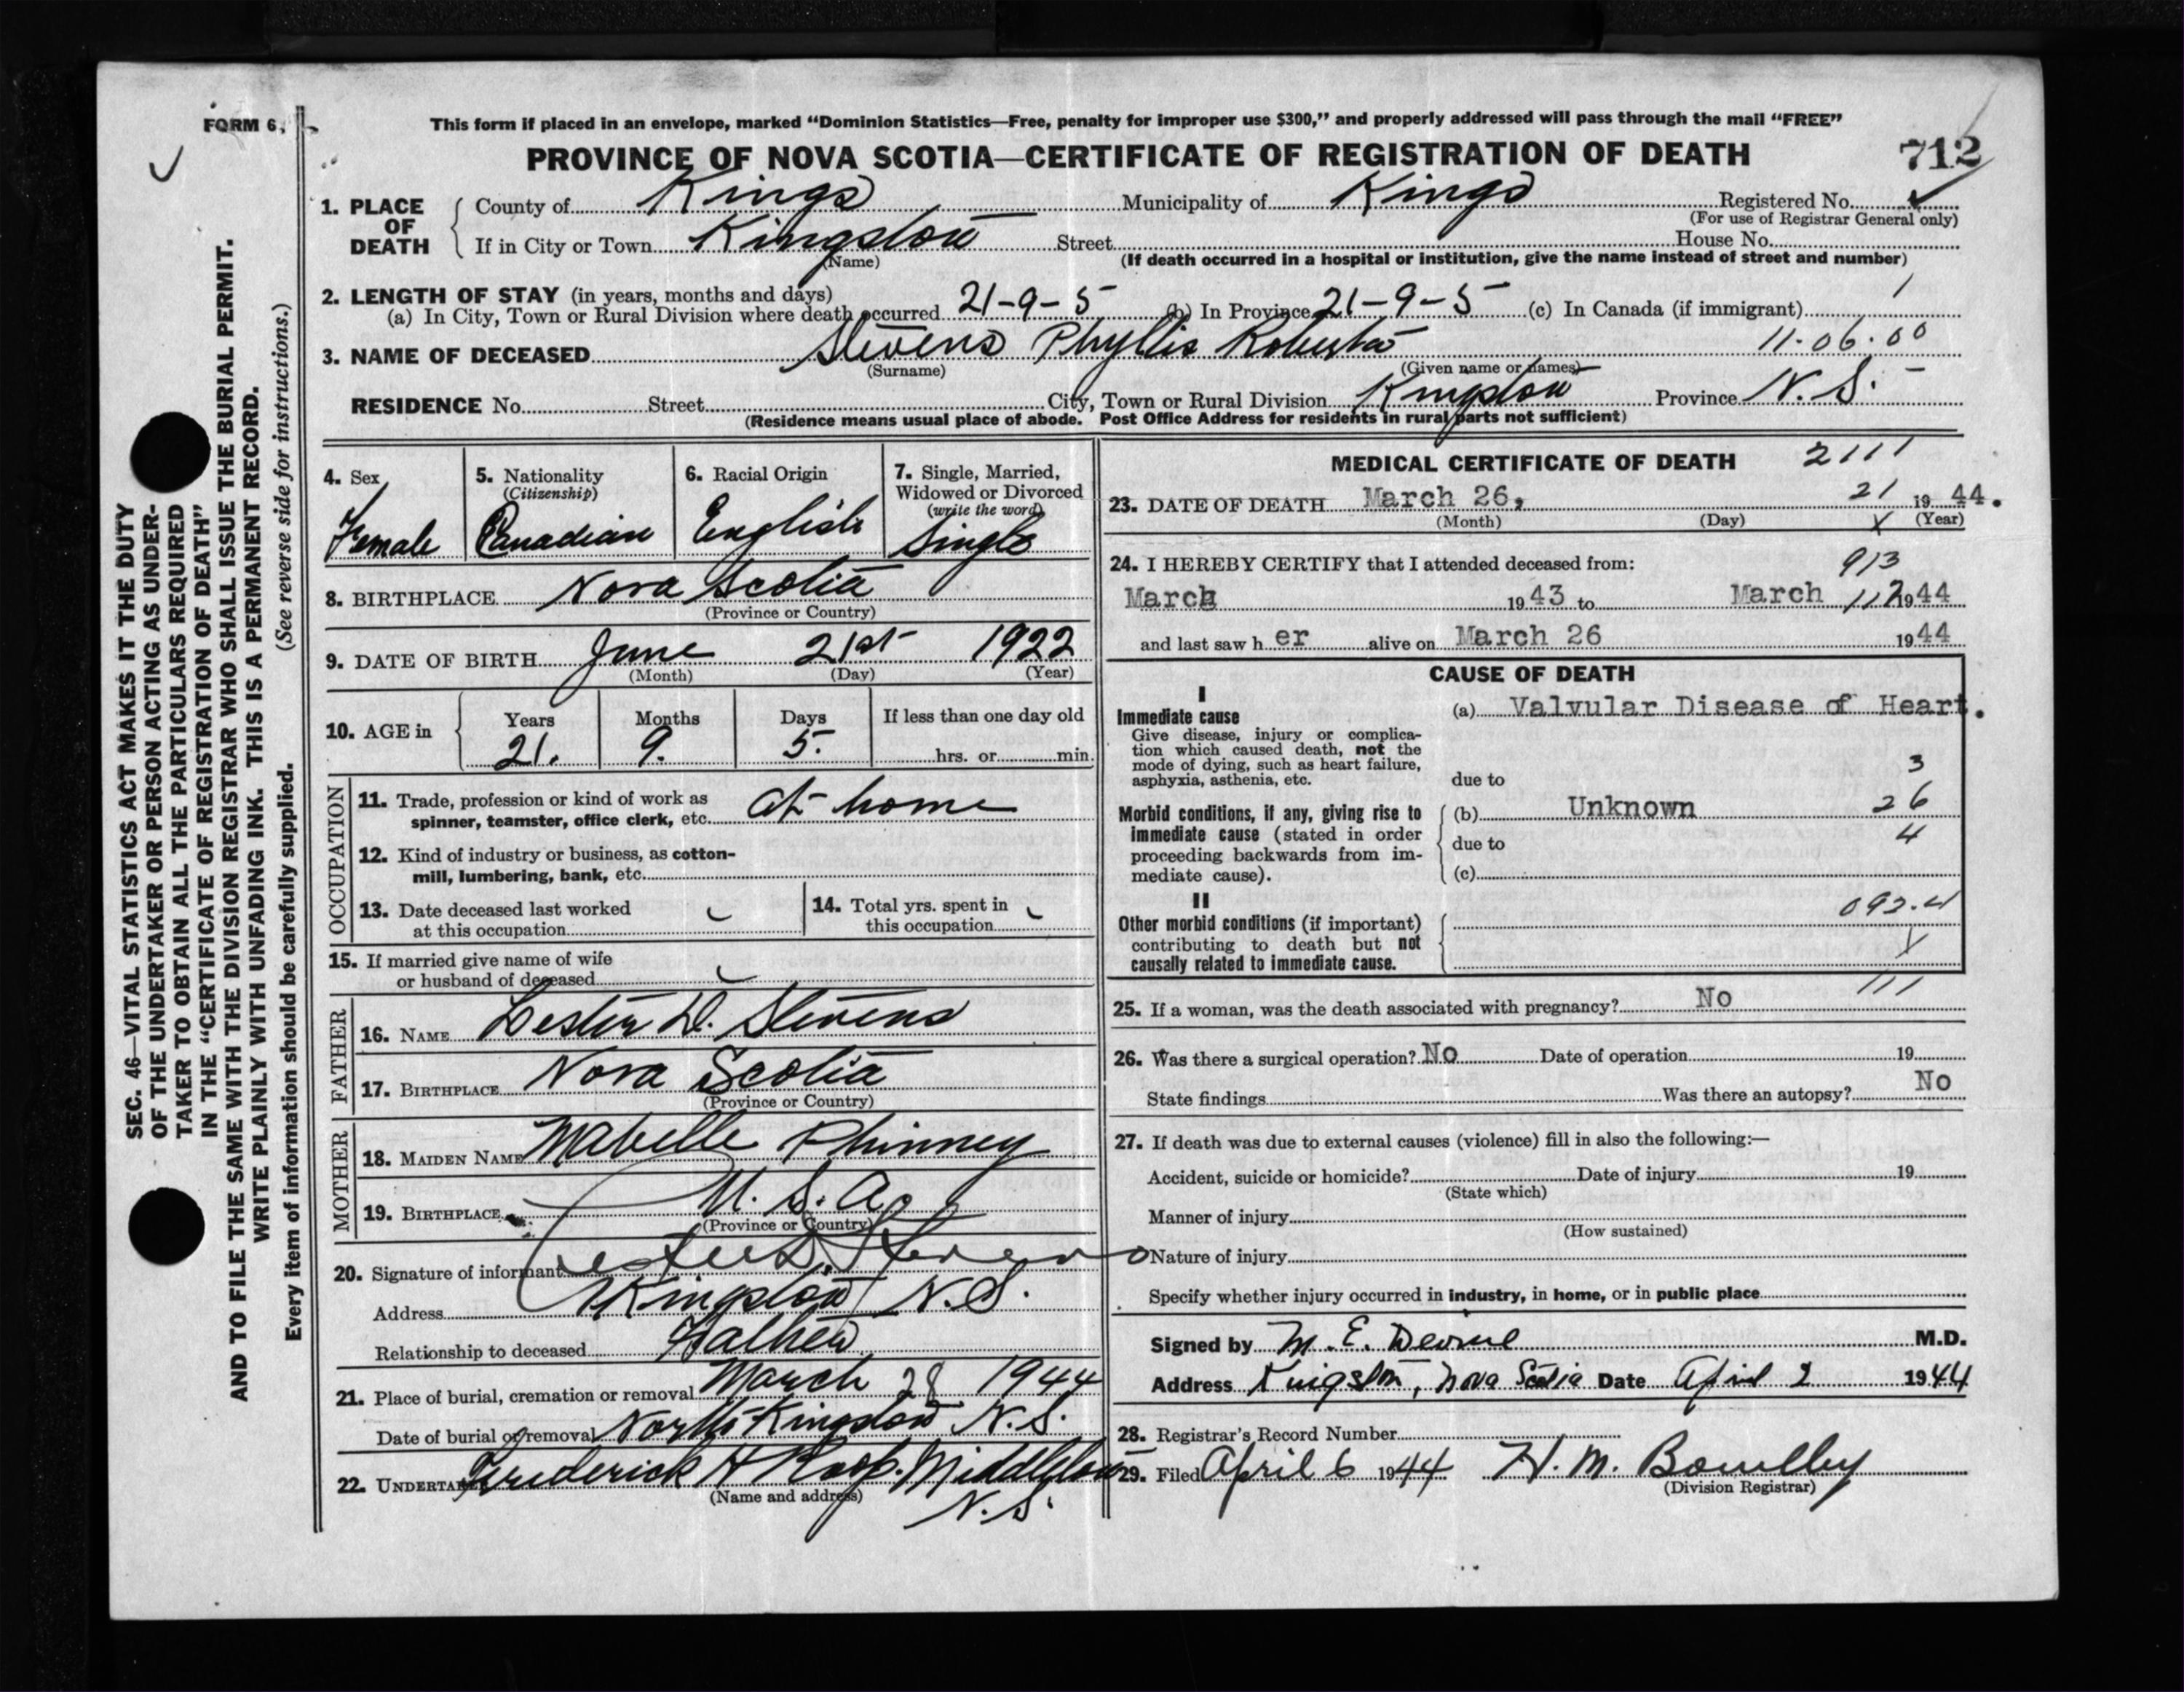 FORM 6.
This form if placed in an envelope, marked “Dominion Statistics—Free, penalty for improper use $300,” and properly addressed will pass through the mail “FREE”
PROVINCE OF NOVA SCOTIA—CERTIFICATE OF REGISTRATION OF DEATH 712
1. PLACE OF DEATH County of Kings Municipality of Kings Registered No.
(For use of Registrar General only)
If in City or Town Kingston Street House No.
(Name) (If death occurred in a hospital or institution, give the name instead of street and number)
2. LENGTH OF STAY (in years, months and days) 1
(a) In City, Town or Rural Division where death occurred 21-9-5 (b) In Province 21-9-5 (c) In Canada (if immigrant)
3. NAME OF DECEASED Stevens Phyllis Roberta 11-06-00
(Surname) (Given name or names)
RESIDENCE No. Street City, Town or Rural Division Kingston Province N.S.
(Residence means usual place of abode. Post Office Address for residents in rural parts not sufficient)
4. Sex Female
5. Nationality (Citizenship) Canadian
6. Racial Origin English
7. Single, Married, Widowed or Divorced (write the word) Single
8. BIRTHPLACE Nova Scotia
(Province or Country)
9. DATE OF BIRTH June 21st 1922
(Month) (Day) (Year)
10. AGE in Years Months Days If less than one day old
21. 9. 5. hrs. or min.
OCCUPATION
11. Trade, profession or kind of work as
spinner, teamster, office clerk, etc. at home
12. Kind of industry or business, as cotton-
mill, lumbering, bank, etc.
13. Date deceased last worked
at this occupation
14. Total yrs. spent in
this occupation
15. If married give name of wife
or husband of deceased
FATHER
16. NAME Lester D. Stevens
17. BIRTHPLACE Nova Scotia
(Province or Country)
MOTHER
18. MAIDEN NAME Mabelle Phinney
19. BIRTHPLACE U.S.A.
(Province or Country)
20. Signature of informant Lester D. Stevens
Address Kingston N.S.
Relationship to deceased Father
21. Place of burial, cremation or removal March 28 1944
Date of burial or removal North Kingston N.S.
22. UNDERTAKER Frederick H Roop. Middleton
(Name and address) N.S.
MEDICAL CERTIFICATE OF DEATH 2111
23. DATE OF DEATH March 26, 21 1944.
(Month) (Day) (Year)
24. I HEREBY CERTIFY that I attended deceased from: 913
March 1943 to March 117 1944
and last saw her alive on March 26 1944
CAUSE OF DEATH
I
Immediate cause
Give disease, injury or complica-
tion which caused death, not the
mode of dying, such as heart failure,
asphyxia, asthenia, etc.
(a) Valvular Disease of Heart.
due to 3
Morbid conditions, if any, giving rise to
immediate cause (stated in order
proceeding backwards from im-
mediate cause).
(b) Unknown 26
due to 4
(c)
II
Other morbid conditions (if important)
contributing to death but not
causally related to immediate cause.
092.4
25. If a woman, was the death associated with pregnancy? No 111
26. Was there a surgical operation? No Date of operation 19
State findings Was there an autopsy? No
27. If death was due to external causes (violence) fill in also the following:—
Accident, suicide or homicide? Date of injury 19
(State which)
Manner of injury
(How sustained)
Nature of injury
Specify whether injury occurred in industry, in home, or in public place
Signed by M. E. Devine M.D.
Address Kingston, Nova Scotia Date April 2 1944
28. Registrar's Record Number
29. Filed April 6 1944 H. M. Bowlby
(Division Registrar)
SEC. 46—VITAL STATISTICS ACT MAKES IT THE DUTY
OF THE UNDERTAKER OR PERSON ACTING AS UNDER-
TAKER TO OBTAIN ALL THE PARTICULARS REQUIRED
IN THE “CERTIFICATE OF REGISTRATION OF DEATH”
AND TO FILE THE SAME WITH THE DIVISION REGISTRAR WHO SHALL ISSUE THE BURIAL PERMIT.
WRITE PLAINLY WITH UNFADING INK. THIS IS A PERMANENT RECORD.
Every item of information should be carefully supplied. (See reverse side for instructions.)